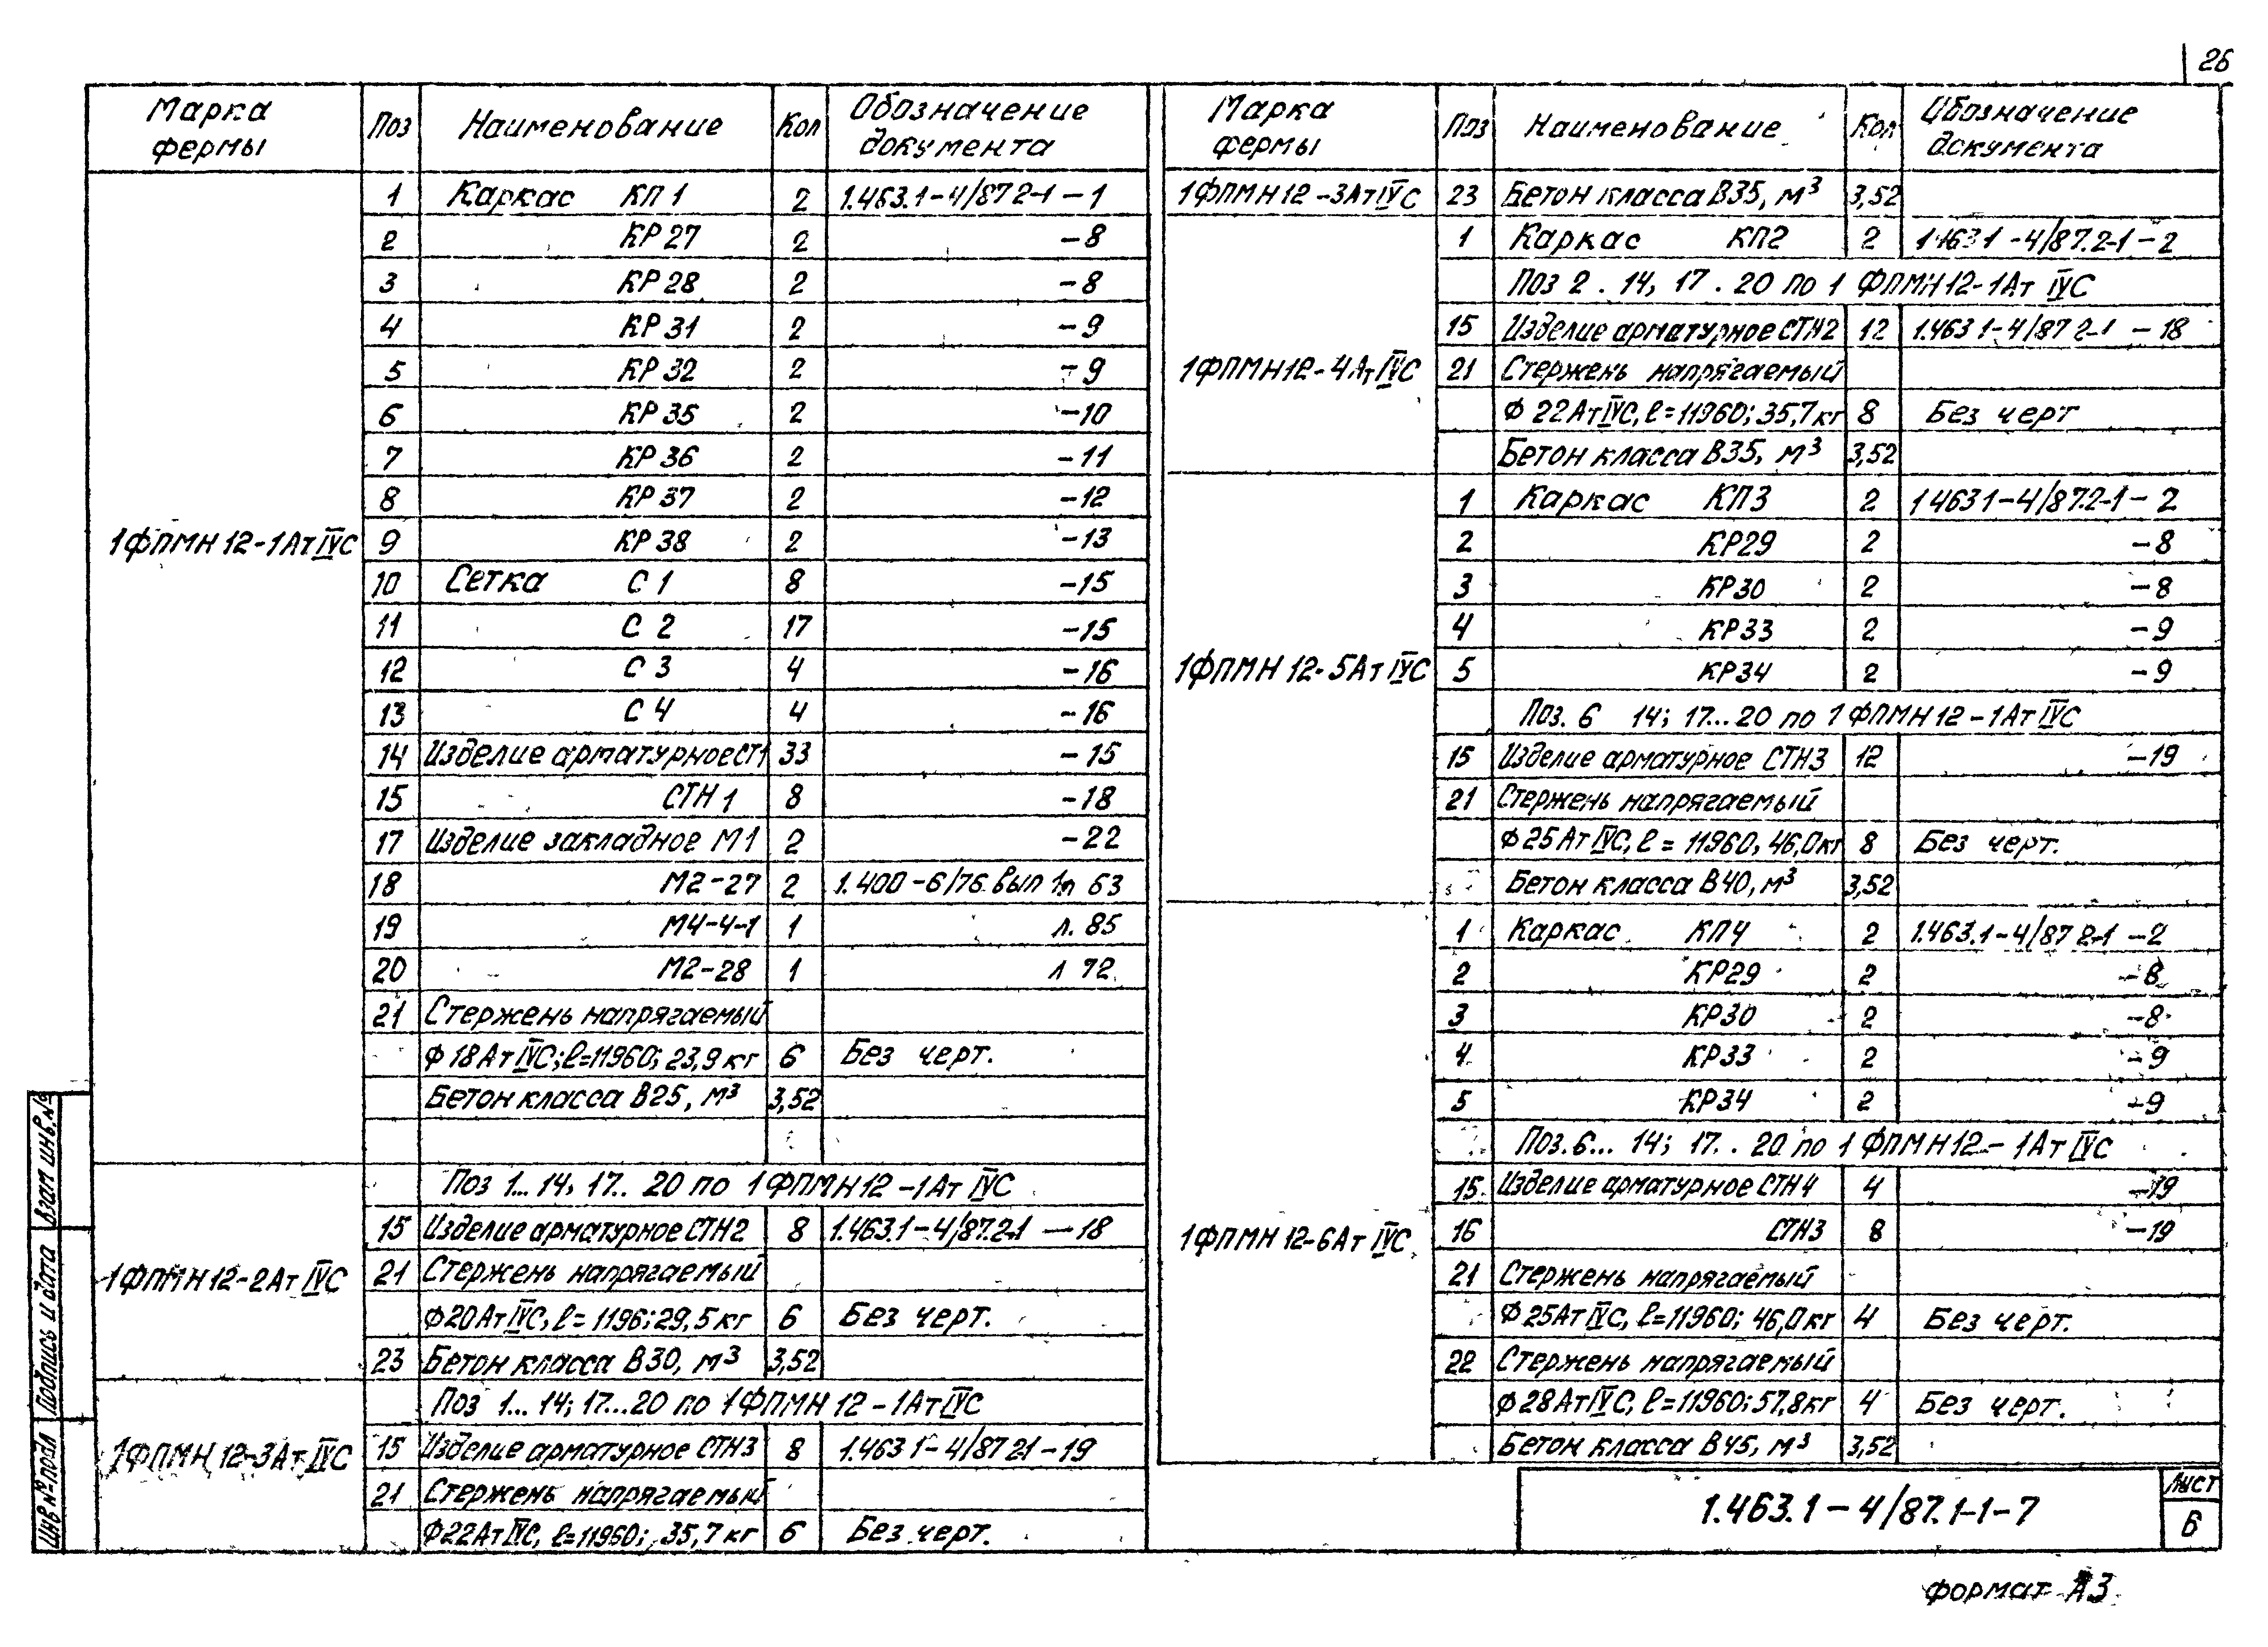 26
Марка фермы | Поз | Наименование | Кол | Обозначение документа
1ФПМН12-1АтIVС | 1 | Каркас КП1 | 2 | 1.463.1-4/87 2-1 -1
2 | КР27 | 2 | -8
3 | КР28 | 2 | -8
4 | КР31 | 2 | -9
5 | КР32 | 2 | -9
6 | КР35 | 2 | -10
7 | КР36 | 2 | -11
8 | КР37 | 2 | -12
9 | КР38 | 2 | -13
10 | Сетка С1 | 8 | -15
11 | С2 | 17 | -15
12 | С3 | 4 | -16
13 | С4 | 4 | -16
14 | Изделие арматурное СТ1 | 33 | -15
15 | СТН1 | 8 | -18
17 | Изделие закладное М1 | 2 | -22
18 | М2-27 | 2 | 1.400-6/76 вып 1л 63
19 | М4-4-1 | 1 | л. 85
20 | М2-28 | 1 | л 72
21 | Стержень напрягаемый
Ф18АтIVС; ℓ=11960; 23,9кг | 6 | Без черт.
Бетон класса В25, м³ | 3,52
1ФПМН12-2АтIVС | Поз 1... 14, 17.. 20 по 1ФПМН12-1АтIVС
15 | Изделие арматурное СТН2 | 8 | 1.463.1-4/87.2-1 -18
21 | Стержень напрягаемый
Ф20АтIVС, ℓ= 1196; 29,5кг | 6 | Без черт.
23 | Бетон класса В30, м³ | 3,52
1ФПМН12-3АтIVС | Поз 1... 14; 17...20 по 1ФПМН12-1АтIVС
15 | Изделие арматурное СТН3 | 8 | 1.463 1-4/87 21-19
21 | Стержень напрягаемый
Ф22АтIVС, ℓ=11960; 35,7кг | 6 | Без черт.
Марка фермы | Поз | Наименование | Кол | Обозначение документа
1ФПМН12-3АтIVС | 23 | Бетон класса В35, м³ | 3,52
1ФПМН12-4АтIVС | 1 | Каркас КП2 | 2 | 1.463 1-4/87.2-1-2
Поз 2 . 14, 17 . 20 по 1 ФПМН12-1АтIVС
15 | Изделие арматурное СТН2 | 12 | 1.463 1-4/87 2-1 -18
21 | Стержень напрягаемый
Ф22АтIVС, ℓ=11960; 35,7кг | 8 | Без черт
Бетон класса В35, м³ | 3,52
1ФПМН12-5АтIVС | 1 | Каркас КП3 | 2 | 1 463 1-4/87.2-1-2
2 | КР29 | 2 | -8
3 | КР30 | 2 | -8
4 | КР33 | 2 | -9
5 | КР34 | 2 | -9
Поз. 6 14; 17...20 по 1ФПМН12-1АтIVС
15 | Изделие арматурное СТН3 | 12 | -19
21 | Стержень напрягаемый
Ф25АтIVС, ℓ= 11960, 46,0кг | 8 | Без черт.
Бетон класса В40, м³ | 3,52
1ФПМН12-6АтIVС | 1 | Каркас КП4 | 2 | 1.463.1-4/87 2-1 -2
2 | КР29 | 2 | -8
3 | КР30 | 2 | -8
4 | КР33 | 2 | -9
5 | КР34 | 2 | -9
Поз. 6... 14; 17.. 20 по 1ФПМН12-1АтIVС
15 | Изделие арматурное СТН4 | 4 | -19
16 | СТН3 | 8 | -19
21 | Стержень напрягаемый
Ф25АтIVС, ℓ=11960; 46,0кг | 4 | Без черт.
22 | Стержень напрягаемый
Ф28АтIVС, ℓ=11960; 57,8кг | 4 | Без черт.
Бетон класса В45, м³ | 3,52
Инв №подл Подпись и дата Взам инв.№
1.463.1-4/87.1-1-7
Лист
6
Формат А3